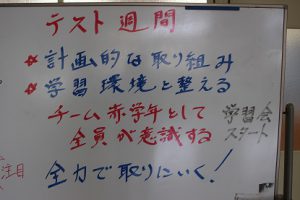 テスト週間
☆計画的な取り組み
☆学習環境を整える
チーム赤学年として
全員が意識する
学習会
スタート
全力で取りにいく!
注目